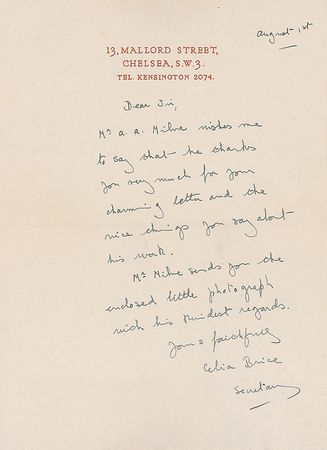 August 1st
13, MALLORD STREET,
CHELSEA, S.W.3.
TEL. KENSINGTON 2074.
Dear Sir,
Mr A. A. Milne wishes me
to say that he thanks
you very much for your
charming letter and the
nice things you say about
his work.
Mr Milne sends you the
enclosed little photograph
with his kindest regards.
Yours faithfully
Celia Brice
Secretary